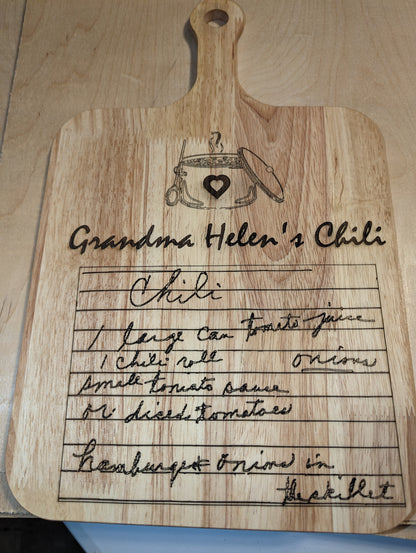 Grandma Helen's Chili
Chili
1 large can tomato juice
1 chili roll onions
small tomato sauce
or diced tomatoes
hamburger onions in
the skillet